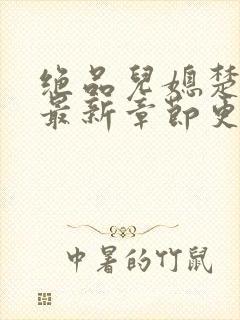 绝品兒媳楚
最新章節更
中暑的竹鼠